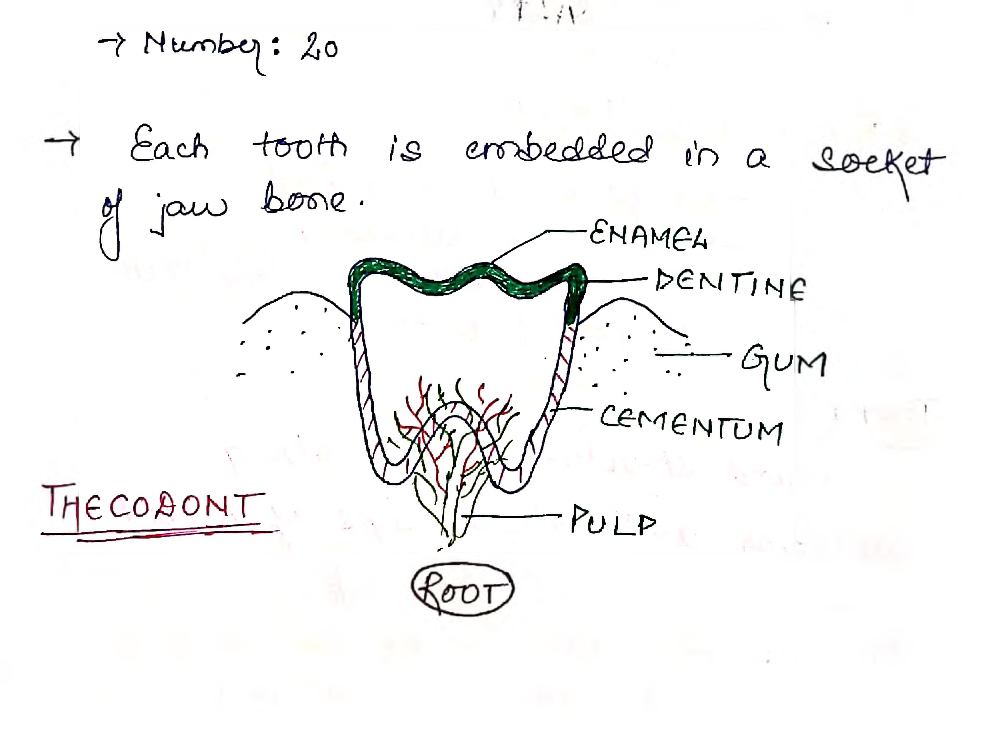 → Number: 20
→ Each tooth is embedded in a socket
of jaw bone.
ENAMEL
DENTINE
GUM
CEMENTUM
THECODONT
PULP
ROOT